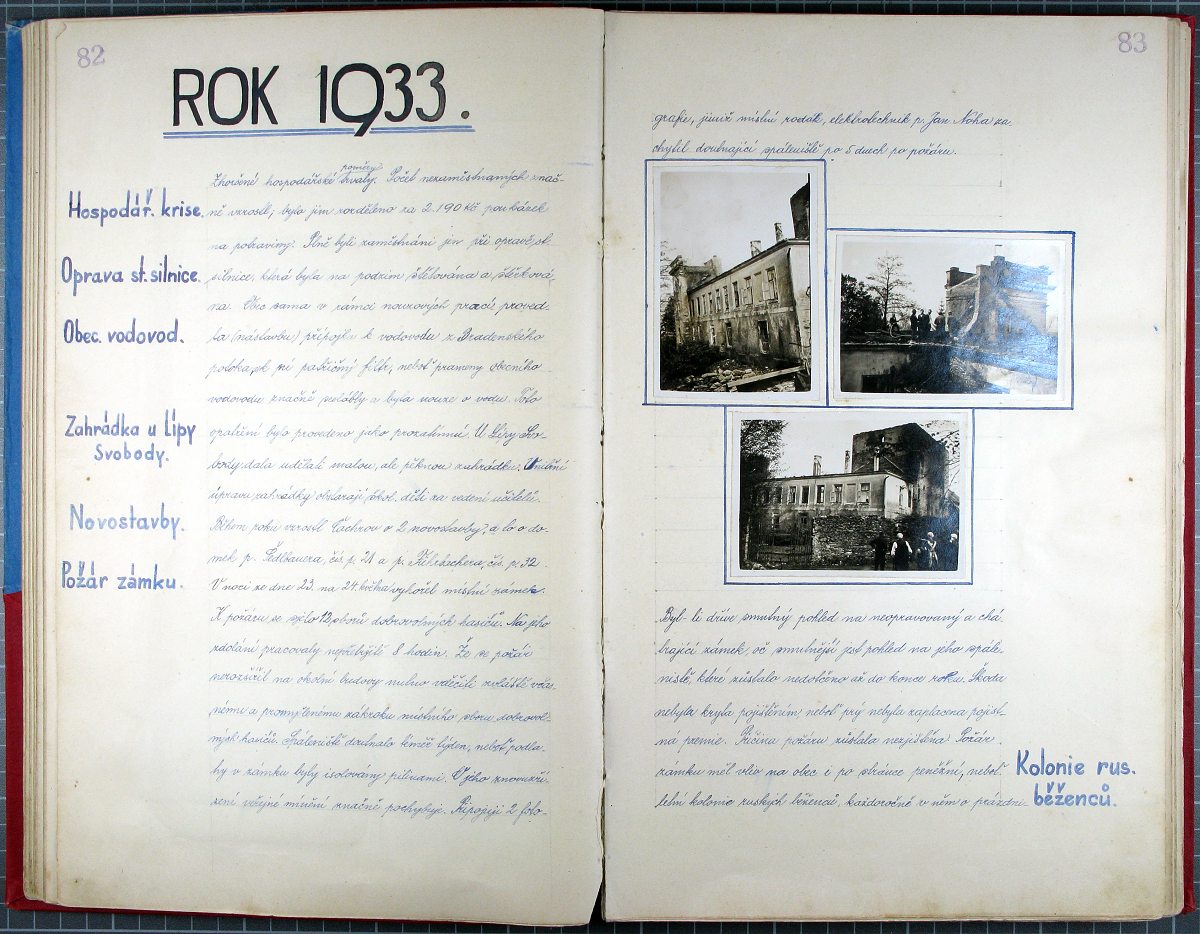 82
ROK 1933.
Hospodář. krise.
Oprava st. silnice.
Obec. vodovod.
Zahrádka u Lípy
Svobody.
Novostavby.
Požár zámku.
poměry
Zhoršené hospodářské trvaly. Počet nezaměstnaných znač-
ně vzrostl; bylo jim rozděleno za 2.190 Kč poukázek
na potraviny. Plně byli zaměstnáni jen při opravě st.
silnice, která byla na podzim štětována a štěrková-
na. Obec sama v rámci nouzových prací proved-
la (nástavbu) přípojku k vodovodu z Bradenského
potoka, pě ní patřičný filtr, neboť prameny obecního
vodovodu značně zeslábly a byla nouze o vodu. Toto
opatření bylo provedeno jako prozatímní. U Lípy Svo-
body dala udělati malou, ale pěknou zahrádku. Vnitřní
úpravu zahrádky obstarají škol. děti za vedení učitelů.
Během roku vzrostl Čachrov o 2 novostavby, a to o do-
mek p. Sedlbauera, čís. p. 21 a p. čís. p. 32.
V noci ze dne 23. na 24. května vyhořel místní zámek.
K požáru se sjelo 12 sborů dobrovolných hasičů. Na jeho
zdolání pracovaly nepřetržitě 8 hodin. Že se požár
nerozšířil na okolní budovy nutno vděčiti zvláště včas-
nému a promyšlenému zákroku místního sboru dobrovol-
ných hasičů. Spáleniště doutnalo téměř týden, neboť podla-
hy v zámku byly isolovány pilinami. O jeho znovuzří-
zení veřejné mínění značně pochybuje. Připojuji 2 foto-
83
grafie, jimiž místní rodák, elektrotechnik p. Jan Nóha za-
chytil doutnající spáleniště po 5 dnech po požáru.
Byl-li dříve smutný pohled na neopravovaný a chá-
trající zámek, oč smutnější jest pohled na jeho spále-
niště, které zůstalo nedotčeno až do konce roku. Škoda
nebyla kryta pojištěním, neboť prý nebyla zaplacena pojist-
ná premie. Příčina požáru zůstala nezjištěna. Požár
zámku měl vliv na obec i po stránce peněžní, neboť
letní kolonie ruských běženců, každoročně v něm o prázdni-
Kolonie rus.
běženců.